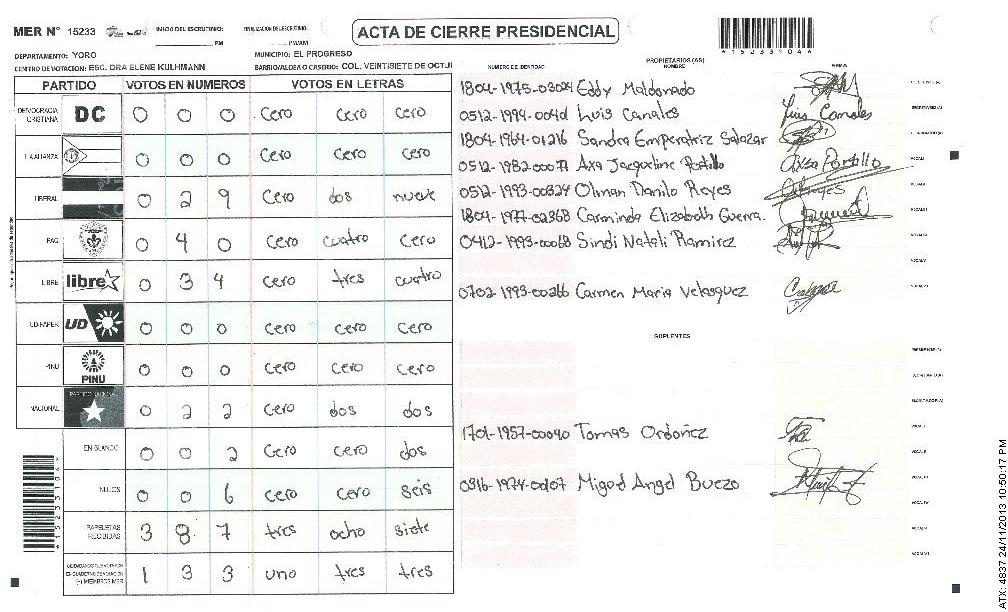 MER Nº 15233 INICIO DEL ESCRUTINIO: FINALIZACION DEL ESCRUTINIO: ACTA DE CIERRE PRESIDENCIAL
PM PM/AM 4152331044
DEPARTAMENTO: YORO MUNICIPIO: EL PROGRESO
CENTRO DE VOTACION: ESC. DRA ELENE KULHMANN BARRIO/ALDEA O CASERIO: COL. VEINTISIETE DE OCTU
PARTIDO VOTOS EN NUMEROS VOTOS EN LETRAS
DEMOCRACIA CRISTIANA DC 0 0 0 Cero Cero Cero
LA ALIANZA 0 0 0 Cero Cero Cero
LIBERAL 0 2 9 Cero dos nueve
PAC 0 4 0 Cero cuatro Cero
LIBRE libre 0 3 4 Cero tres cuatro
UD-FAPER UD 0 0 0 Cero Cero Cero
PINU PINU 0 0 0 Cero Cero Cero
NACIONAL 0 2 2 Cero dos dos
EN BLANCO 0 0 2 Cero Cero dos
NULOS 0 0 6 Cero Cero Seis
PAPELETAS RECIBIDAS 3 8 7 tres ocho siete
1 3 3 uno tres tres
NUMERO DE IDENTIDAD PROPIETARIOS (AS) NOMBRE FIRMA
1804-1975-03024 Eddy Maldonado
Luis Canales Luis Canales
1804-1964-01216 Sandra Emperatriz Salazar
0512-1982-00071 Axa Jacqueline Portillo Axsa Portillo
0512-1993-00324 Olman Danilo Reyes
1804-1977-02368 Carminda Elizabeth Guerra.
0412-1993-00068 Sindi Natali Ramirez
0702-1993-00266 Carmen Maria Velasquez
SUPLENTES
1701-1957-00040 Tomas Ordoñez
Miguel Angel Buezo
ATX: 4837 24/11/2013 10:50:17 PM